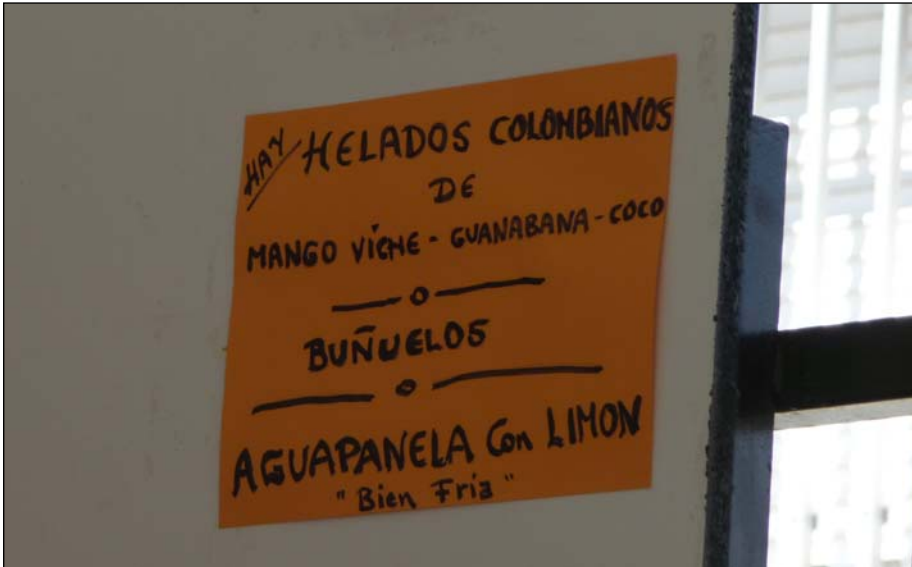 HAY HELADOS COLOMBIANOS
DE
MANGO VICHE - GUANABANA - COCO
BUÑUELOS
AGUAPANELA Con LIMON
"Bien Fria"